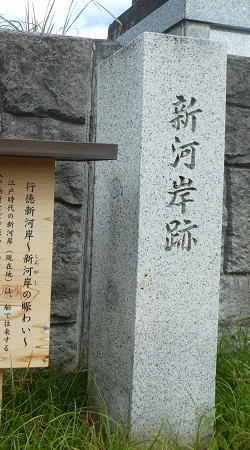 新河岸跡
行徳新河岸～新河岸の賑わい～
しんがし
江戸時代の新河岸（現在地）は、船で往来する